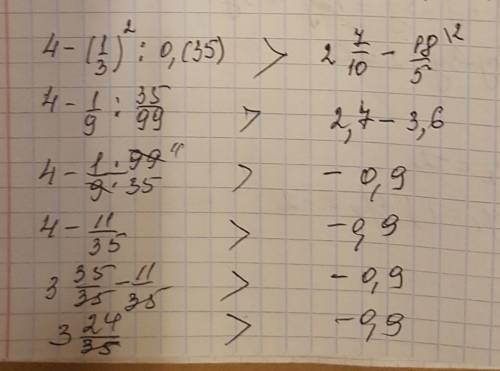 4 - (1/3)² : 0,(35) > 2 7/10 - 18/5 \2
4 - 1/9 : 35/99 > 2,7 - 3,6
4 - 1·99/9·35 11 > - 0,9
4 - 11/35 > -0,9
3 35/35 - 11/35 > -0,9
3 24/35 > -0,9